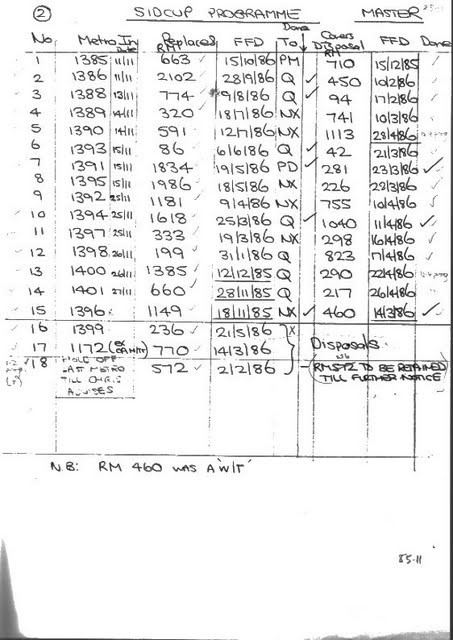 2 SIDCUP PROGRAMME MASTER 85-11
No Metro In Date Replaces RM FFD Done To Covers Disposal RM FFD Done
1 1385 11/11 663 ✓ 15/10/86 PM 710 15/12/85 ✓
2 1386 11/11 2102 ✓ 28/9/86 Q ✓ 450 10/2/86 ✓
3 1388 13/11 774 ✓ 9/8/86 Q ✓ 94 17/2/86 ✓
4 1389 14/11 320 ✓ 18/7/86 NX 741 10/3/86 ✓
5 1390 14/11 591 12/7/86 NX 1113 28/4/86
6 1393 15/11 86 ✓ 6/6/86 Q ✓ 42 21/3/86 ✓
7 1391 15/11 1834 ✓ 19/5/86 PD ✓ 281 23/3/86 ✓
8 1395 15/11 1986 ✓ 18/5/86 NX 226 29/3/86 ✓
9 1392 25/11 1181 ✓ 9/4/86 NX 755 10/4/86 ✓
10 1394 25/11 1618 ✓ 25/3/86 Q ✓ 1040 11/4/86 ✓
11 1397 25/11 333 ✓ 19/3/86 NX 298 16/4/86 ✓
12 1398 26/11 199 ✓ 31/1/86 Q 823 17/4/86 ✓
13 1400 26/11 1385 ✓ 12/12/85 Q 290 22/4/86
14 1401 27/11 660 ✓ 28/11/85 Q 217 26/4/86 ✓
15 1396 1149 ✓ 18/11/85 NX ✓ 460 14/3/86 ✓
16 1399 236 ✓ 21/5/86 X
17 1172 (EX 770 ✓ 14/3/86 Disposals.
18 HOLD OFF 572 ✓ 2/2/86 (NB RM572 TO BE RETAINED
LAST METRO TILL FURTHER NOTICE)
TILL CHRIS
ADVISES
N.B: RM 460 WAS A 'WIT'
85-11